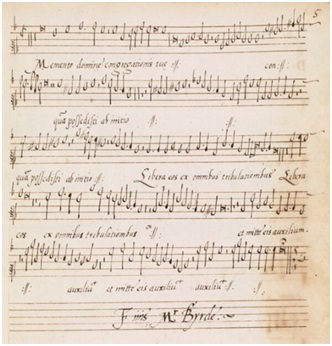 5
Memento domine congregationis tue :||: con :||:
quā possedisti ab initio :||: :||:
quā possedisti ab initio :||: Libera eos ex omnibus tribulationibus Libera
eos ex omnibus tribulationibus :||: et mitte eis auxilium
:||: auxiliū et mitte eis auxiliū auxiliū :||:
Mr. Byrde :